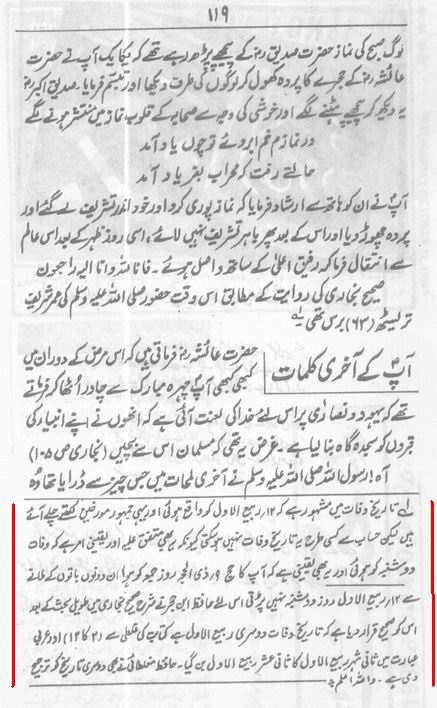 ۱۱۹
لوگ صبح کی نماز حضرت صدیق رضہ کے پیچھے پڑھ رہے تھے کہ یکایک آپ نے حضرت
عائشہ رضہ کے حجرے کا پردہ کھول کر لوگوں کی طرف دیکھا اور تبسم فرمایا۔ صدیق اکبر رضہ
یہ دیکھ کر پیچھے ہٹنے لگے اور خوشی کی وجہ سے صحابہ کے قلوب نماز میں منتشر ہونے لگے
در نمازم خم ابروئے تو چوں یاد آمد
حالتے رفت کہ محراب بفریاد آمد
آپ نے ان کو ہاتھ سے ارشاد فرمایا کہ نماز پوری کرو اور خود اندر تشریف لے گئے اور
پردہ چھوڑ دیا اور اس کے بعد پھر باہر تشریف نہیں لائے۔ اسی روز ظہر کے بعد اس عالم
سے انتقال فرما کر رفیق اعلیٰ کے ساتھ واصل ہوئے۔ فانا للہ وانا الیہ راجعون
صحیح بخاری کی روایت کے مطابق اس وقت حضور صلی اللہ علیہ وسلم کی عمر شریف
تریسٹھ (۶۳) برس تھی لہ
آپ کے آخری کلمات
حضرت عائشہ رضہ فرماتی ہیں کہ اس مرض کے دوران میں
کبھی کبھی آپ چہرہ مبارک سے چادر اٹھا کر فرماتے
تھے کہ یہود و نصاریٰ پر اس لئے خدا کی لعنت آئی ہے کہ انھوں نے اپنے انبیاء کی
قبروں کو سجدہ گاہ بنا لیا ہے۔ غرض یہ تھی کہ مسلمان اس سے بچیں (بخاری ص ۱۰۵)
آہ! رسول اللہ صلی اللہ علیہ وسلم نے آخری لمحات میں جس چیز سے ڈرایا تھا وہ
لہ تاریخ وفات میں مشہور ہے کہ ۱۲ ربیع الاول کو واقع ہوئی اور یہی جمہور مورخین لکھتے چلے آئے
ہیں لیکن حساب سے کسی طرح یہ تاریخ وفات نہیں ہو سکتی کیونکہ یہ بھی متفق علیہ اور یقینی امر ہے کہ وفات
دوشنبہ کو ہوئی اور یہ بھی یقینی ہے کہ آپ کا حج ۹ ذی الحجہ روز جمعہ کو ہوا ان دونوں باتوں کے ملانے
سے ۱۲ ربیع الاول روز دوشنبہ نہیں پڑتی اس لئے حافظ ابن حجر نے شرح صحیح بخاری میں طویل بحث کے بعد
اس کو صحیح قرار دیا ہے کہ تاریخ وفات دوسری ربیع الاول ہے کتابت کی غلطی سے (۲ کا ۱۲) اور عربی
عبارت میں ثانی شہر ربیع الاول کا ثانی عشر ربیع الاول بن گیا۔ حافظ مغلطائی نے بھی دوسری تاریخ کو ترجیح
دی ہے۔ واللہ اعلم